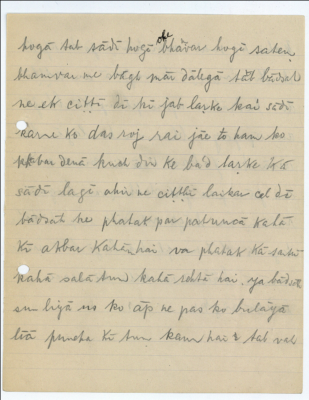 hogā tab sādī hogā ok bhāvar hogī satem
bhamvar me bāgh mār dālegā tab bādsah
ne ek ciṭṭī dī ki jab laṛke kai sādī
karne ko das roj rai jāe to ham ko
khbar denā kuch din ke bād laṛke kā
sādī lagī ahir ne ciṭṭhī laikar cel dī
bādsāh ke phatak par pahuncā kalā
kī akbar kahān hai va phatak kā
kahā salā tum kahā rahtā hai, ya bādsāh
sun liyā us ko āp ne pas ko bulāyā
liā puncha kī tum kam hai tab vah